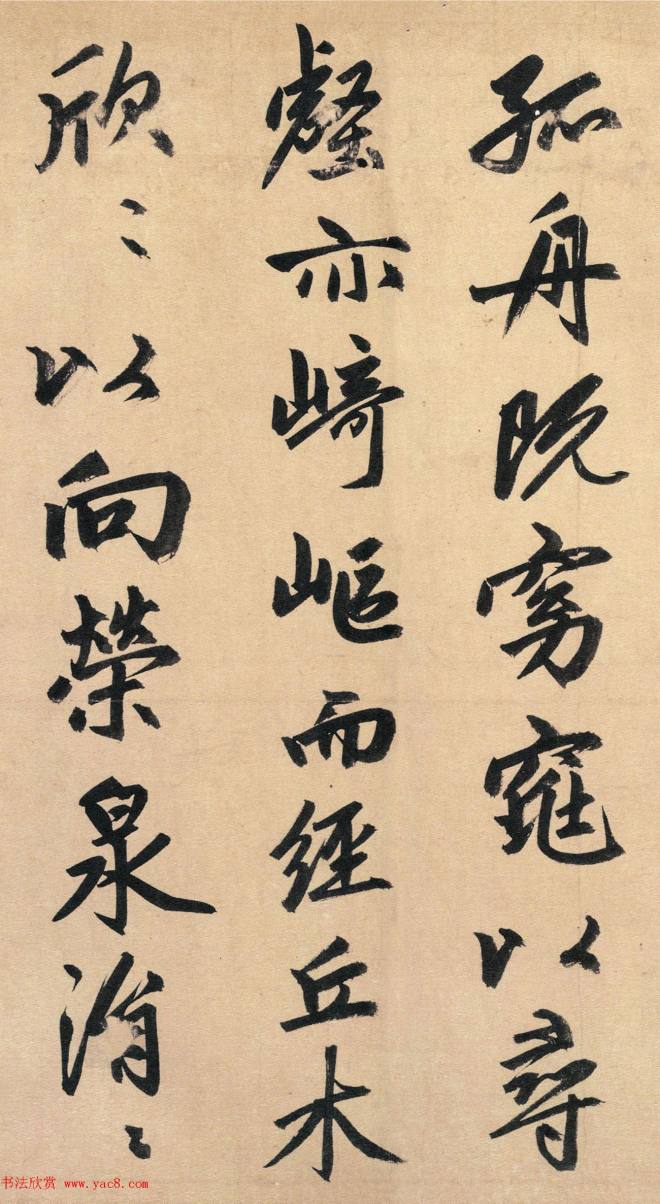 孤舟既窈窕以尋
壑亦崎嶇而經丘木
欣〻以向榮泉涓〻
书法欣赏 www.yac8.com